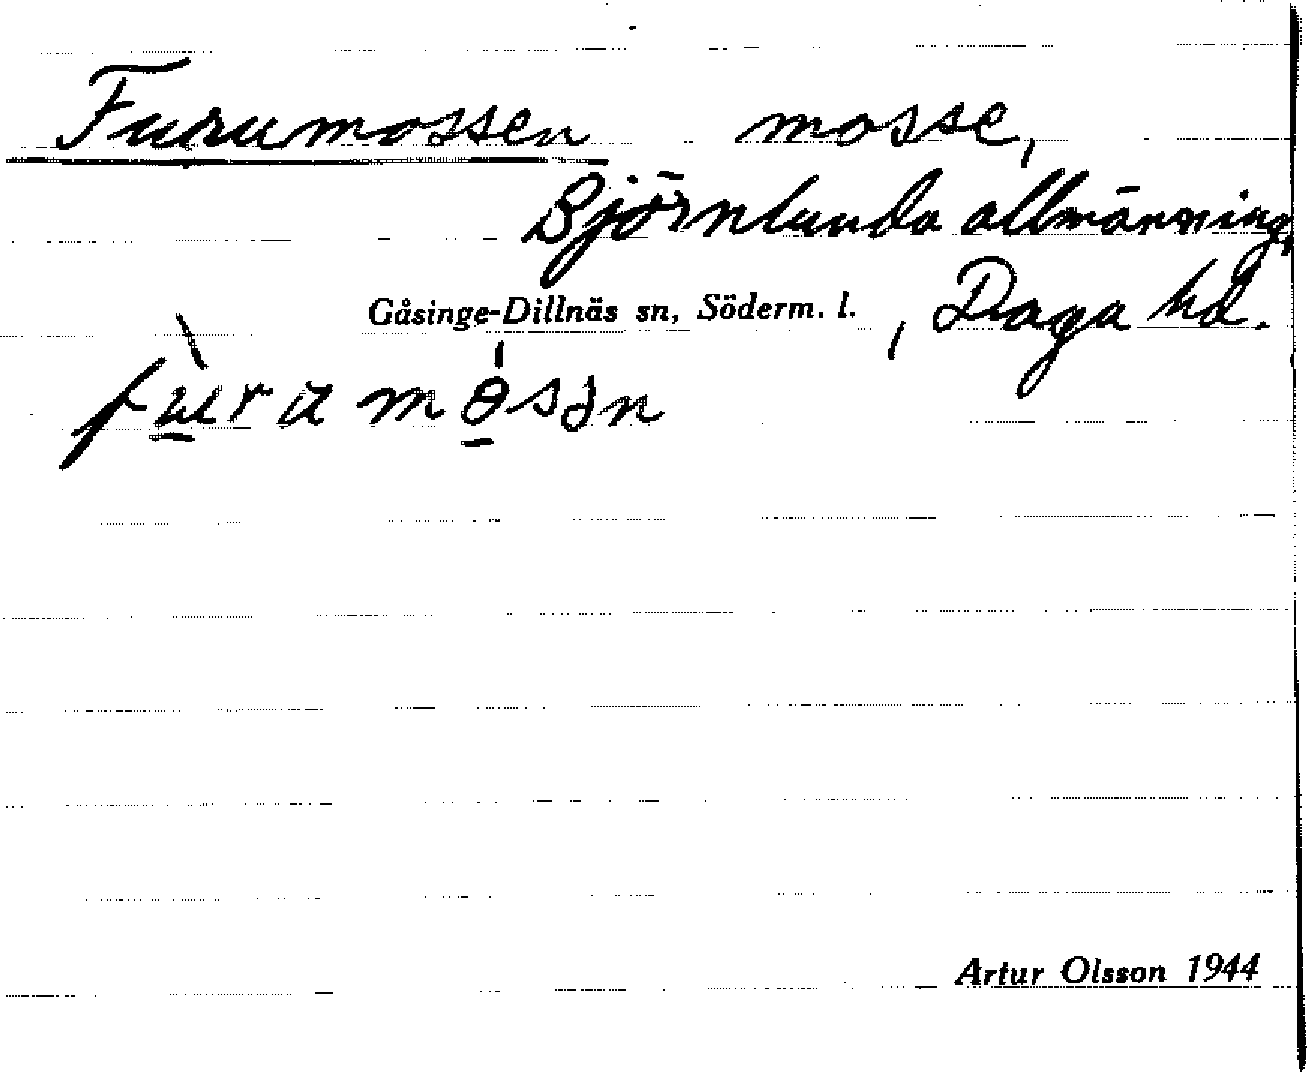 Furumossen mosse,
Björnlunda allmänning,
Gåsinge-Dillnäs sn, Söderm. l., Daga hd.
Artur Olsson 1944